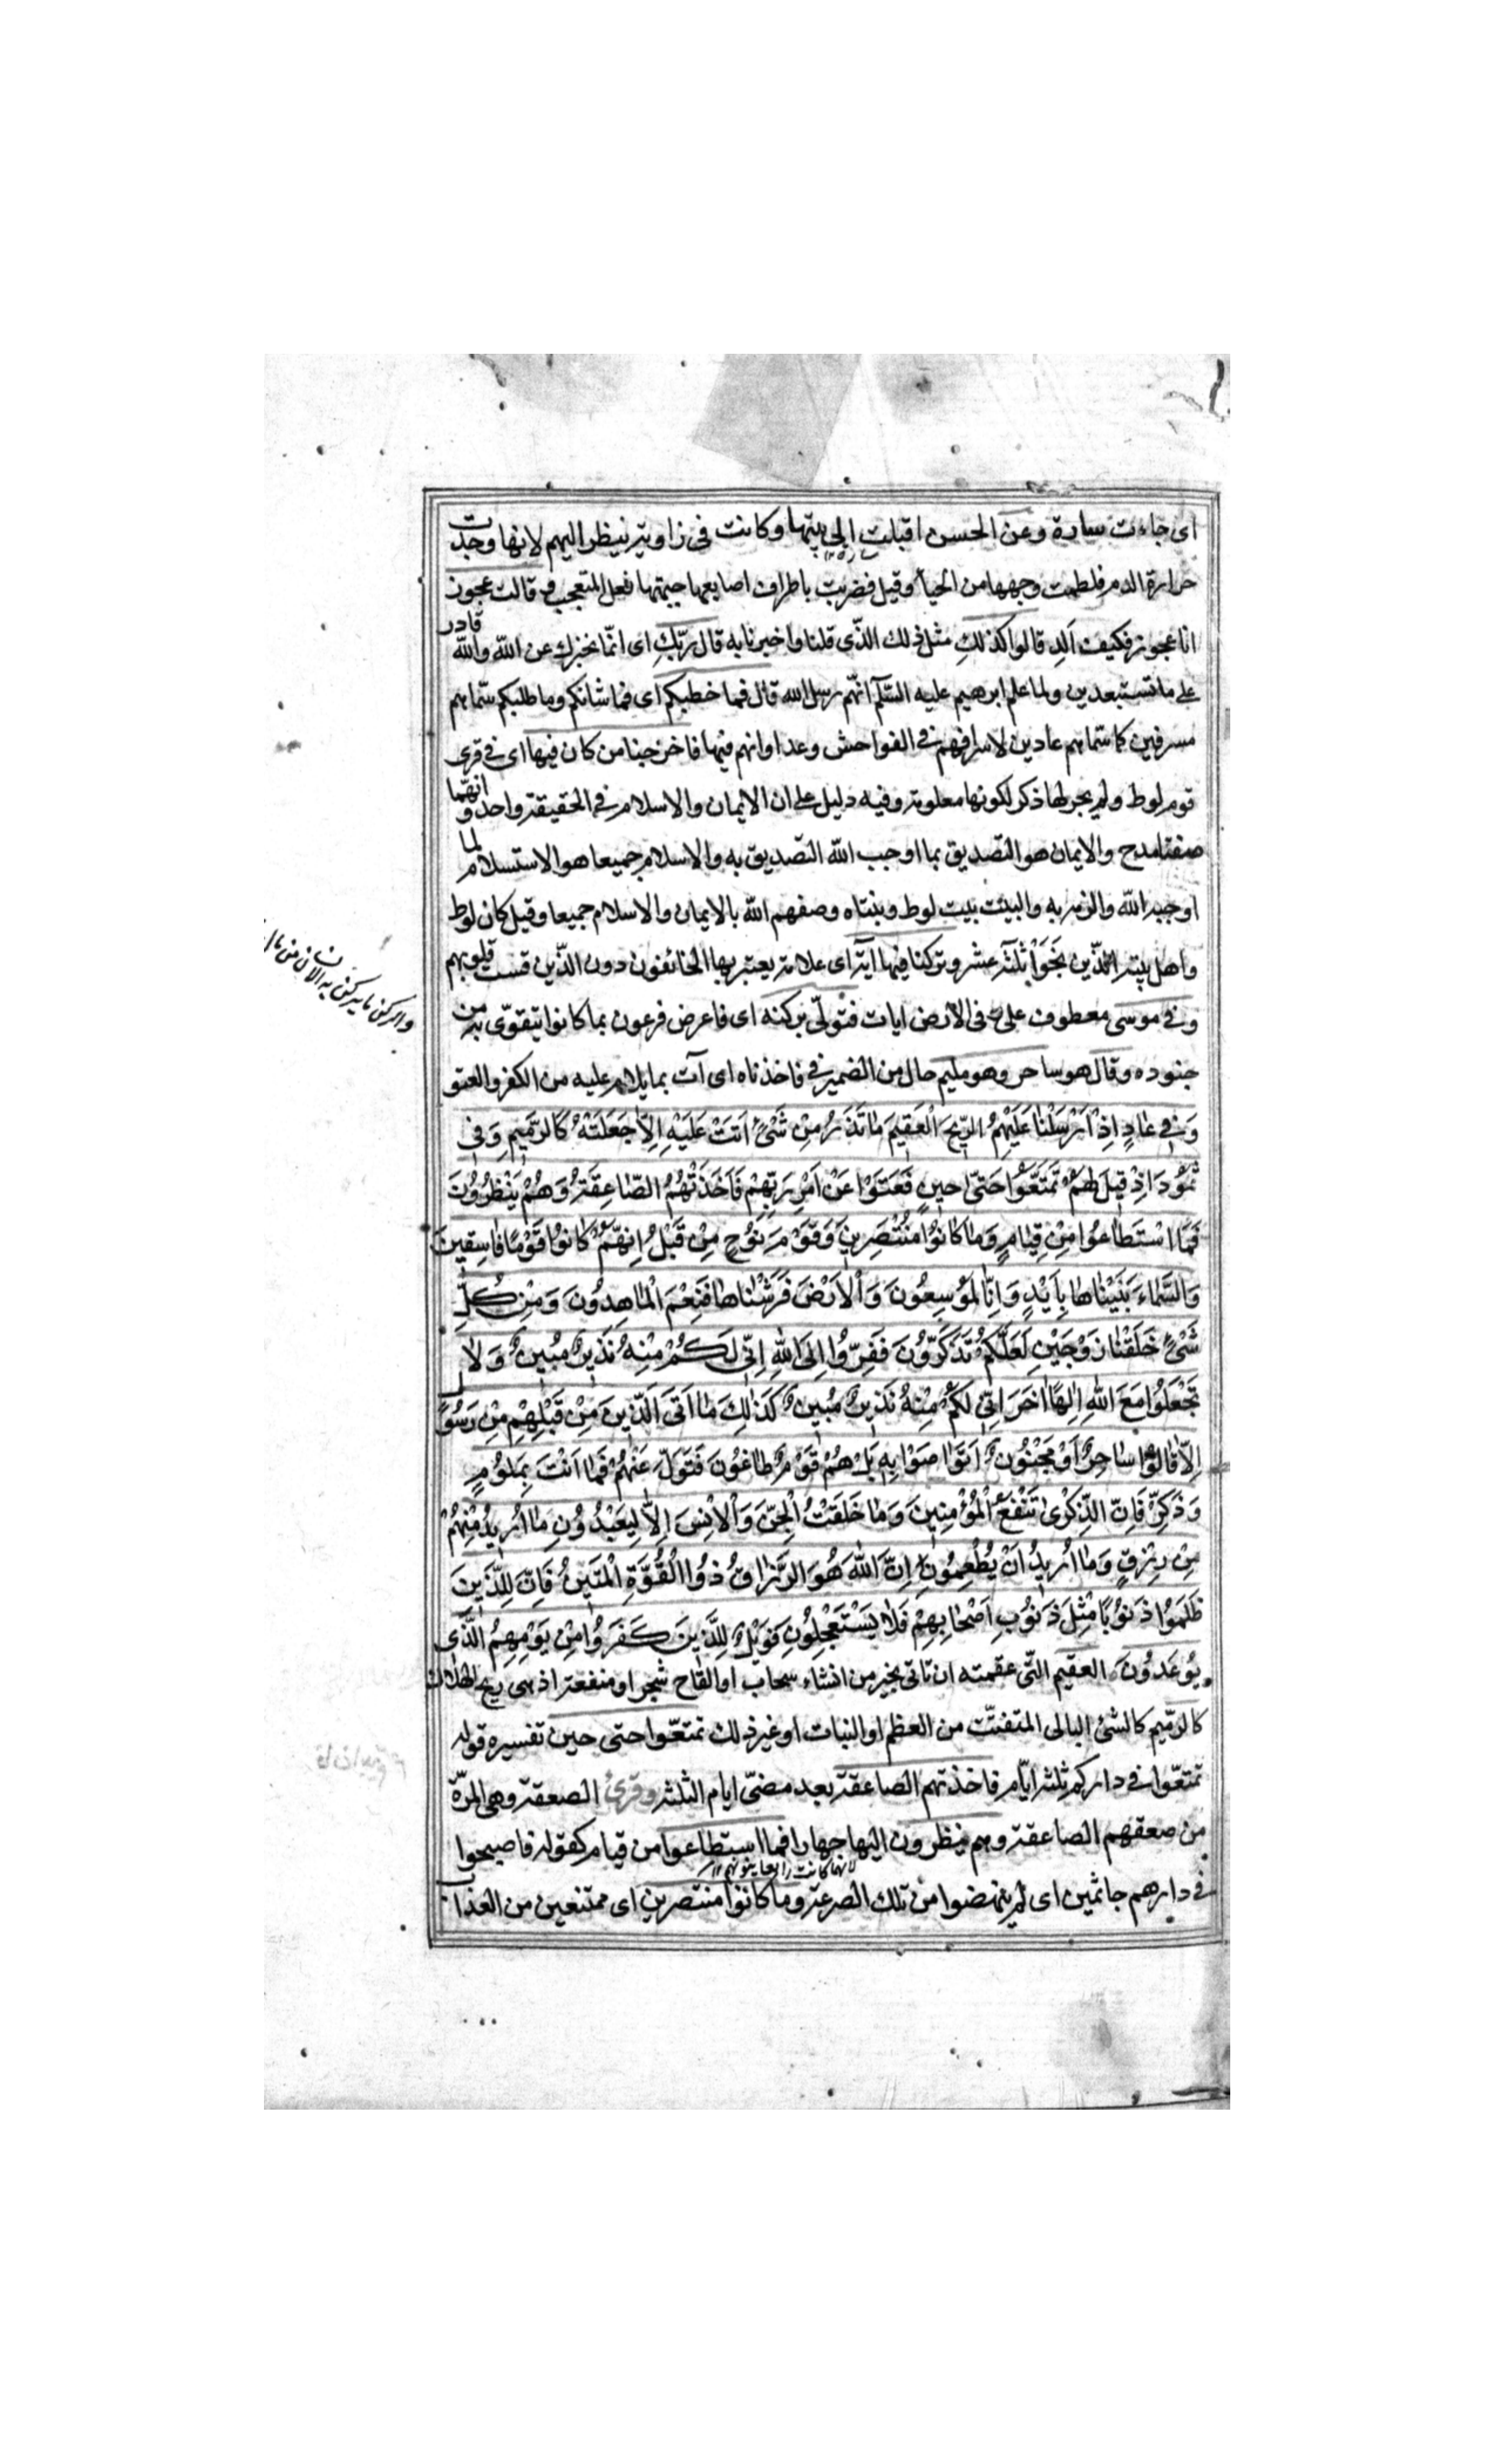 اى جاءت سارة وعن الحسن اقبلت الى بيتها وكانت فى زاوية تنظر اليهم لانها وجدت
سارة ١٢
حرارة الدم فلطمت وجهها من الحيآء وقيل فضربت باطراف اصابعها جبهتها فعل المتعجب وقالت عجوز
انا عجوز فكيف الد قالوا كذلك مثل ذلك الذّى قلنا واخبرنا به قال ربّكِ اى انّما نخبرك عن الله والله قادر
على ما تستبعدين ولما علم ابرهيم عليه السّلم انّهم رسل الله قال فما خطبكم اى فما شانكم وما طلبكم سمّاهم
مسرفين كما سمّاهم عادين لاسرافهم فى الفواحش وعداوانهم فيها فاخرجنا من كان فيها اى فى قرى
قوم لوط ولم يجر لها ذكر لكونها معلومة وفيه دليل على ان الايمان والاسلام فى الحقيقة واحد وانهما
صفتا مدح والايمان هو التصديق بما اوجب الله التصديق به والاسلام جميعا هو الاستسلام لما
اوجبه الله والزم به والبيت بيت لوط وبنتاه وصفهم الله بالايمان والاسلام جميعا وقيل كان لوط
واهل بيته الّذين نَجَوْا ثلثة عشر وتركنا فيها آية اى علامة يعتبر بها الخائفون دون الذّين قست قلوبهم
وفى موسى معطوف على وفى الارض ايات فتولّى بركنه اى فاعرض فرعون بما كانوا يتقوّى به من
جنوده وقال هو ساحر وهو مليم حال من الضمير فى فاخذناه اى آت بما يلام عليه من الكفر والعتو
وَفى عادٍ اِذْ اَرْسَلْنا عَلَيْهِمُ الرّيحَ الْعَقيمَ ما تَذَرُ مِنْ شَىْءٍ اَتَتْ عَلَيْهِ اِلاّ جَعَلَتْهُ كَالرَّميمِ وَفى
ثَمُودَ اِذْ قيلَ لَهُمْ تَمَتَّعُوا حَتّى حينٍ فَعَتَوْا عَنْ اَمْرِ رَبِّهِمْ فَاَخَذَتْهُمُ الصّاعِقَةُ وَهُمْ يَنْظُرُونَ
فَمَا اسْتَطاعُوا مِنْ قِيامٍ وَما كانُوا مُنْتَصِرينَ وَقَوْمَ نُوحٍ مِنْ قَبْلُ اِنَّهُمْ كانُوا قَوْمًا فاسِقينَ
وَالسَّماءَ بَنَيْناها بِاَيْدٍ وَاِنّا لَمُوسِعُونَ وَالْاَرْضَ فَرَشْناها فَنِعْمَ الْماهِدُونَ وَمِنْ كُلِّ
شَىْءٍ خَلَقْنا زَوْجَيْنِ لَعَلَّكُمْ تَذَكَّرُونَ فَفِرُّوا اِلَى اللهِ اِنّى لَكُمْ مِنْهُ نَذيرٌ مُبينٌ وَلا
تَجْعَلُوا مَعَ اللهِ اِلهًا اخَرَ اِنّى لَكُمْ مِنْهُ نَذيرٌ مُبينٌ كَذلِكَ ما اَتَى الَّذينَ مِنْ قَبْلِهِمْ مِنْ رَسُولٍ
اِلاّ قالُوا ساحِرٌ اَوْ مَجْنُونٌ اَتَواصَوْا بِهِ بَلْ هُمْ قَوْمٌ طاغُونَ فَتَوَلَّ عَنْهُمْ فَما اَنْتَ بِمَلُومٍ
وَذَكِّرْ فَاِنَّ الذِّكْرى تَنْفَعُ الْمُؤْمِنينَ وَما خَلَقْتُ الْجِنَّ وَالْاِنْسَ اِلاّ لِيَعْبُدُونِ ما اُريدُ مِنْهُمْ
مِنْ رِزْقٍ وَما اُريدُ اَنْ يُطْعِمُونِ اِنَّ اللهَ هُوَ الرَّزّاقُ ذُو الْقُوَّةِ الْمَتينُ فَاِنَّ لِلَّذينَ
ظَلَمُوا ذَنُوبًا مِثْلَ ذَنُوبِ اَصْحابِهِمْ فَلا يَسْتَعْجِلُونِ فَوَيْلٌ لِلَّذينَ كَفَرُوا مِنْ يَوْمِهِمُ الَّذى
يُوعَدُونَ العقيم التّى عقمته ان تاتى بخير من انشاء سحاب او القاح شجر او منفعة اذ هى ريح الهلاك
كالرّميم كالشئ البالى المتفتّت من العظم او النبات او غير ذلك تمتعّوا حتى حين تفسيره قوله
تمتعّوا فى داركم ثلثة ايّام فاخذتهم الصاعقة بعد مضىّ ايام الثلثة وقرئ الصعقة وهى المرّة
من صعقهم الصاعقة وهم ينظرون اليها جهارا فما استطاعوا من قيام كقوله فاصبحوا
لانها كانت نهارا يعاينونها ١٢
فى دارهم جاثمين اى لم ينهضوا من تلك الصرعة وما كانوا منتصرين اى ممتنعين من العذاب
والركن ما يركن به الانسان من مال